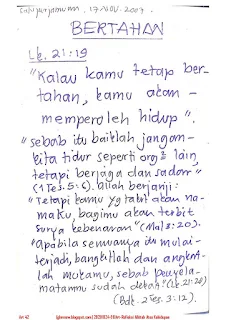 17 NOV. 2007.
BERTAHAN
Lk. 21:19
"Kalau kamu tetap ber-
tahan, kamu akan -
memperoleh hidup".
"sebab itu baiklah jangan-
kita tidur seperti org2 lain,
tetapi berjaga dan sadar"
(1 Tes. 5:6). Allah berjanji:
"Tetapi kamu yg takut akan na-
maKu, bagimu akan terbit
surya kebenaran" (Mal 3:20).
"Apabila semuanya itu mulai-
terjadi, bangkitlah dan angkat-
lah mukamu, sebab penyela-
matanmu sudah dekat" (Lk. 21:28)
(Bdk. 2 Tes. 3:12).
Art 42